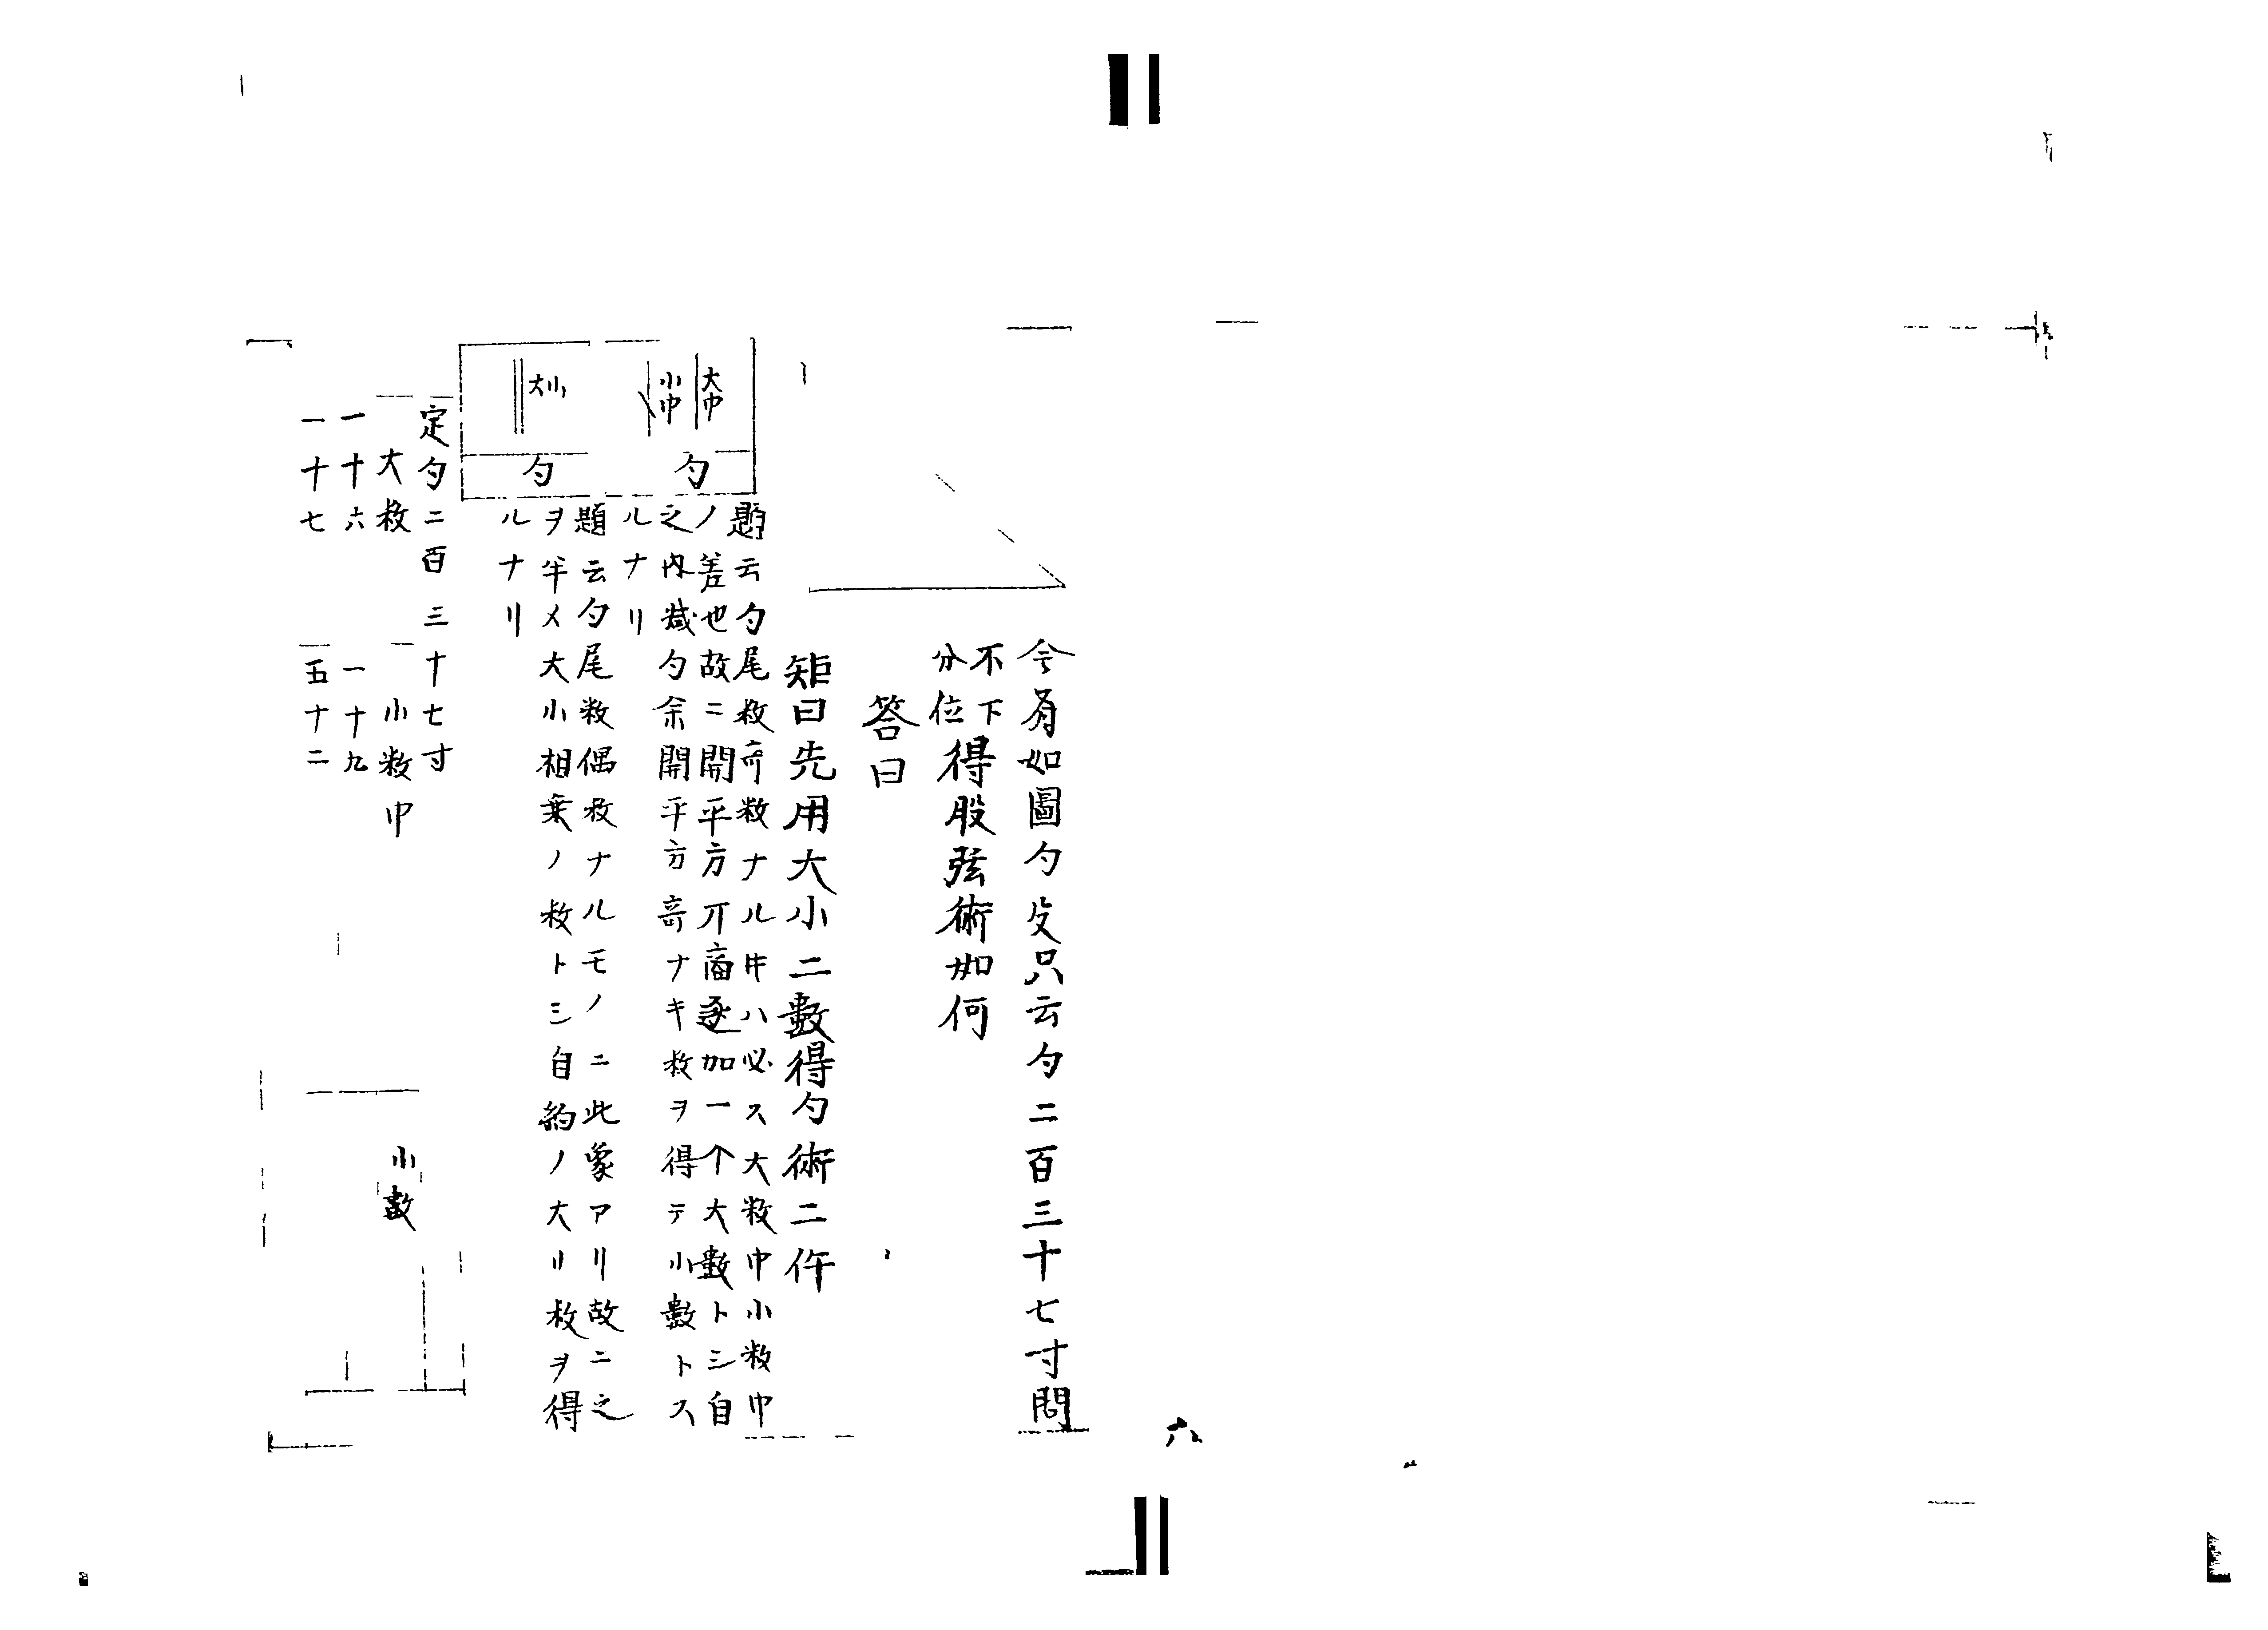 今有如圖勾股只云勾二百三十七寸問
不下
分位
得股弦術如何
答曰
矩曰先用大小二數得勾術二件
大巾
小巾
勾
題云勾尾数奇数ナル片ハ必ス大数巾小数巾
ノ差也故ニ開平方商逐加一个大數トシ自
之内減勾余開平方奇ナキ数ヲ得テ小數トス
ルナリ
大小
勾
題云勾尾数偶数ナルモノニ此象アリ故ニ之
ヲ半メ大小相乗ノ数トシ自約ノ大リ数ヲ得
ルナリ
定勾二百三十七寸
大数
小数巾
小數
一十六
一十九
一十七
五十二
六